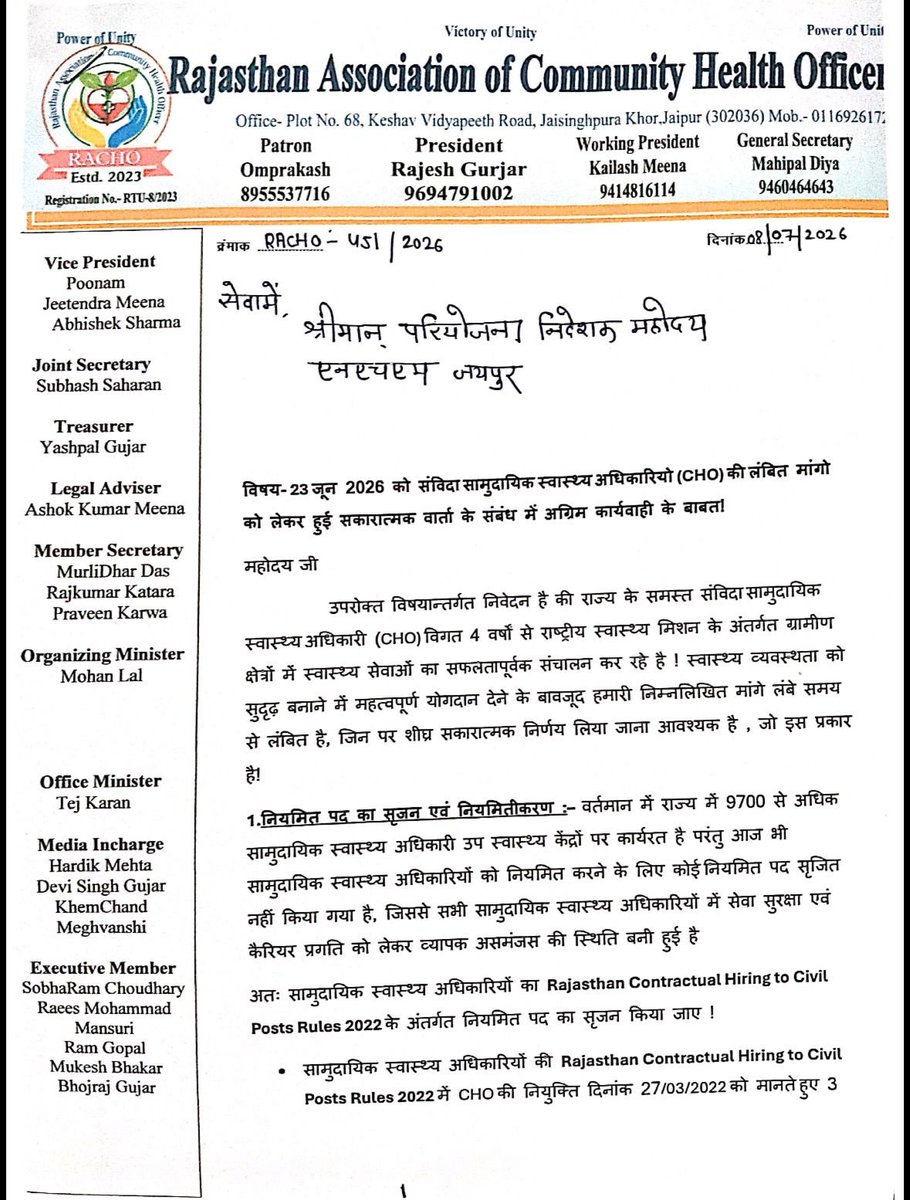 Power of Unity
Victory of Unity
Power of Unit
Rajasthan Association of Community Health Officer
Rajasthan Association Community Health Officer
RACHO
Estd. 2023
Registration No.- RTU-8/2023
Office- Plot No. 68, Keshav Vidyapeeth Road, Jaisinghpura Khor,Jaipur (302036) Mob.- 0116926172
Patron
Omprakash
8955537716
President
Rajesh Gurjar
9694791002
Working President
Kailash Meena
9414816114
General Secretary
Mahipal Diya
9460464643
Vice President
Poonam
Jeetendra Meena
Abhishek Sharma
Joint Secretary
Subhash Saharan
Treasurer
Yashpal Gujar
Legal Adviser
Ashok Kumar Meena
Member Secretary
MurliDhar Das
Rajkumar Katara
Praveen Karwa
Organizing Minister
Mohan Lal
Office Minister
Tej Karan
Media Incharge
Hardik Mehta
Devi Singh Gujar
KhemChand
Meghvanshi
Executive Member
SobhaRam Choudhary
Raees Mohammad
Mansuri
Ram Gopal
Mukesh Bhakar
Bhojraj Gujar
क्रंमाक RACHO - 451/2026
दिनांक 08/07/2026
सेवामें,
श्रीमान् परियोजना निदेशक महोदय
एनएचएम जयपुर
विषय- 23 जून 2026 को संविदा सामुदायिक स्वास्थ्य अधिकारियो (CHO) की लंबित मांगो
को लेकर हुई सकारात्मक वार्ता के संबंध में अग्रिम कार्यवाही के बाबत!
महोदय जी
उपरोक्त विषयान्तर्गत निवेदन है की राज्य के समस्त संविदा सामुदायिक
स्वास्थ्य अधिकारी (CHO) विगत 4 वर्षों से राष्ट्रीय स्वास्थ्य मिशन के अंतर्गत ग्रामीण
क्षेत्रों में स्वास्थ्य सेवाओं का सफलतापूर्वक संचालन कर रहे है ! स्वास्थ्य व्यवस्थता को
सुदृढ़ बनाने में महत्वपूर्ण योगदान देने के बावजूद हमारी निम्नलिखित मांगे लंबे समय
से लंबित है, जिन पर शीघ्र सकारात्मक निर्णय लिया जाना आवश्यक है , जो इस प्रकार
है!
1.नियमित पद का सृजन एवं नियमितीकरण :– वर्तमान में राज्य में 9700 से अधिक
सामुदायिक स्वास्थ्य अधिकारी उप स्वास्थ्य केंद्रों पर कार्यरत है परंतु आज भी
सामुदायिक स्वास्थ्य अधिकारियों को नियमित करने के लिए कोई नियमित पद सृजित
नहीं किया गया है, जिससे सभी सामुदायिक स्वास्थ्य अधिकारियों में सेवा सुरक्षा एवं
कैरियर प्रगति को लेकर व्यापक असमंजस की स्थिति बनी हुई है
अतः सामुदायिक स्वास्थ्य अधिकारियों का Rajasthan Contractual Hiring to Civil
Posts Rules 2022 के अंतर्गत नियमित पद का सृजन किया जाए !
• सामुदायिक स्वास्थ्य अधिकारियों की Rajasthan Contractual Hiring to Civil
Posts Rules 2022 में CHO की नियुक्ति दिनांक 27/03/2022 को मानते हुए 3
1